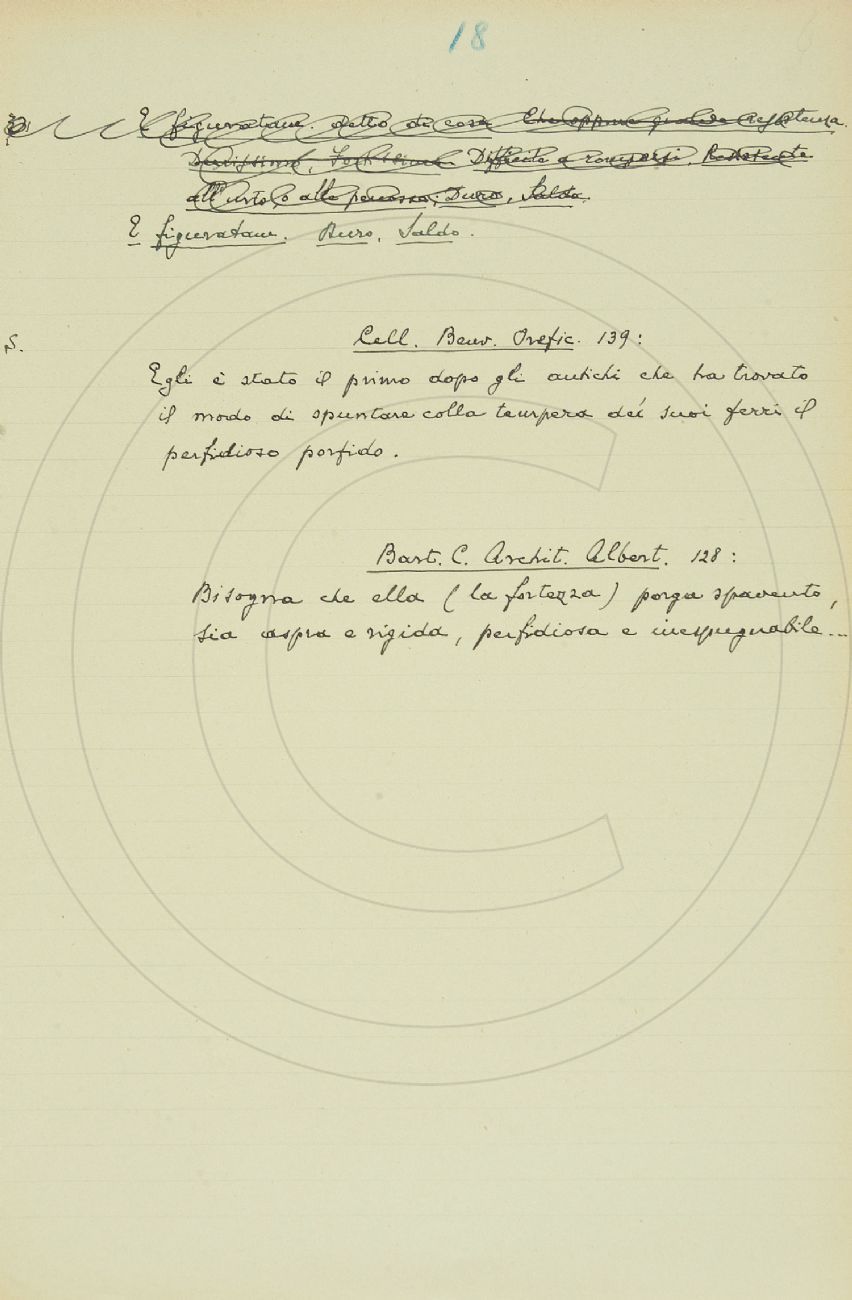 18
E figuratam. detto di cosa Che oppone grande resistenza.
Durissimo, Fortissimo. Difficile a rompersi, Resistente
all'urto o alla percossa; Duro, Saldo.
E figuratam. Duro, Saldo.
S.
Cell. Benv. Orefic. 139:
Egli è stato il primo dopo gli antichi che ha trovato
il modo di spuntare colla tempera dei suoi ferri il
perfidioso porfido.
Bart. C. Archit. Albert. 128:
Bisogna che ella (la fortezza) porga spavento,
sia aspra e rigida, perfidiosa e inespugnabile...